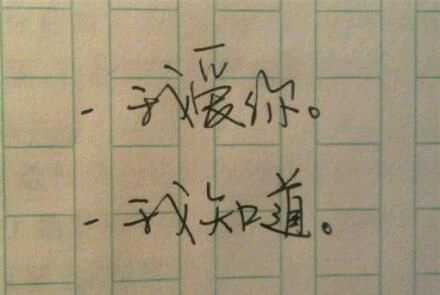 - 我爱你。
- 我知道。